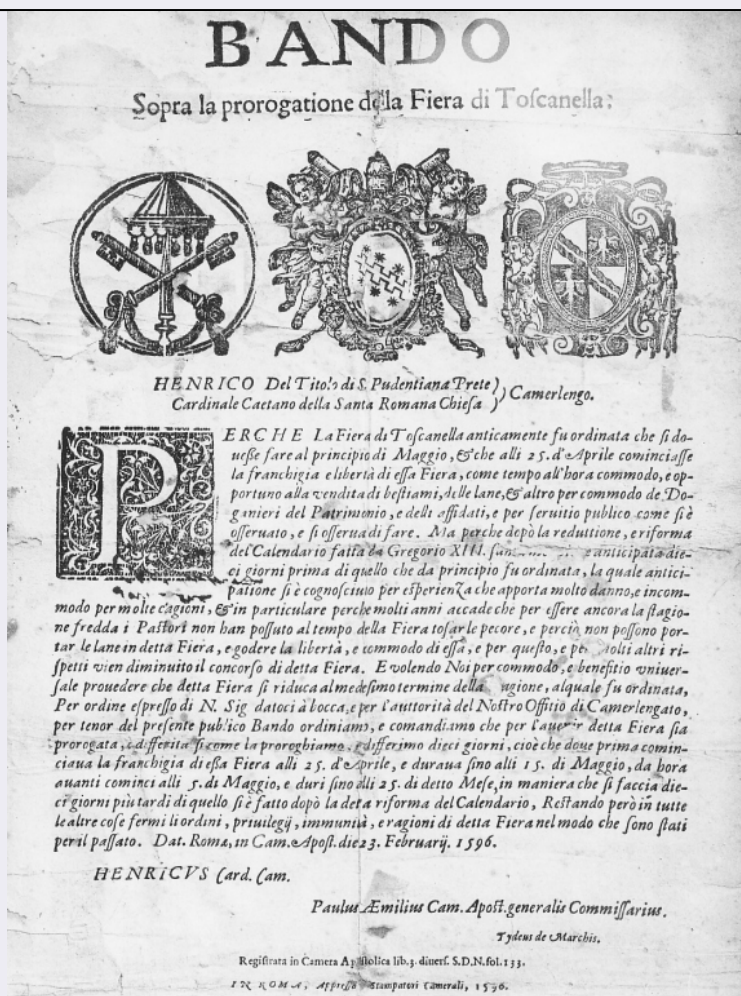 BANDO
Sopra la prorogatione della Fiera di Toſcanella.
HENRICO Del Titolo di S. Pudentiana Prete )
Cardinale Caetano della Santa Romana Chieſa ) Camerlengo.
PERCHE La Fiera di Toſcanella anticamente fu ordinata che ſi do-
ueſſe fare al principio di Maggio, & che alli 25. d'Aprile cominciaſſe
la franchigia e libertà di eſſa Fiera, come tempo all'hora commodo, e op-
portuno alla vendita di beſtiami, delle lane, & altro per commodo de Do-
ganieri del Patrimonio, e delli affidati, e per ſeruitio publico come ſi è
oſſeruato, e ſi oſſerua di fare. Ma perche dopò la reduttione, e riforma
del Calendario fatta da Gregorio XIII. è anticipata die-
ci giorni prima di quello che da principio fu ordinata, la quale antici-
patione ſi è cognoſciuto per eſperienza che apporta molto danno, e incom-
modo per molte cagioni, & in particulare perche molti anni accade che per eſſere ancora la ſtagio-
ne fredda i Paſtori non han poſſuto al tempo della Fiera toſar le pecore, e perciò non poſſono por-
tar le lane in detta Fiera, e godere la libertà, e commodo di eſſa, e per queſto, e per molti altri ri-
ſpetti vien diminuito il concorſo di detta Fiera. E volendo Noi per commodo, e benefitio vniuer-
ſale prouedere che detta Fiera ſi riduca al medeſimo termine della ſtagione, al quale fu ordinata,
Per ordine eſpreſſo di N. Sig datoci à bocca, e per l'auttorità del Noſtro Offitio di Camerlengato,
per tenor del preſente publico Bando ordiniamo, e comandiamo che per l'auenir detta Fiera ſia
prorogata, e differita ſi come la proroghiamo, e differimo dieci giorni, cioè che doue prima comin-
ciaua la franchigia di eſſa Fiera alli 25. d'Aprile, e duraua ſino alli 15. di Maggio, da hora
auanti cominci alli 5. di Maggio, e duri ſino alli 25. di detto Meſe, in maniera che ſi faccia die-
ci giorni più tardi di quello ſi è fatto dopò la detta riforma del Calendario, Reſtando però in tutte
le altre coſe fermi li ordini, priuilegij, immunità, e ragioni di detta Fiera nel modo che ſono ſtati
per il paſſato. Dat. Roma, in Cam. Apoſt. die 23. Februarij. 1596.
HENRICVS Card. Cam.
Paulus Æmilius Cam. Apoſt. generalis Commiſſarius.
Tydeus de Marchis.
Regiſtrata in Camera Apoſtolica lib. 3. diuerſ. S.D.N. fol. 133.
IN ROMA, Appreſſo Stampatori Camerali, 1596.